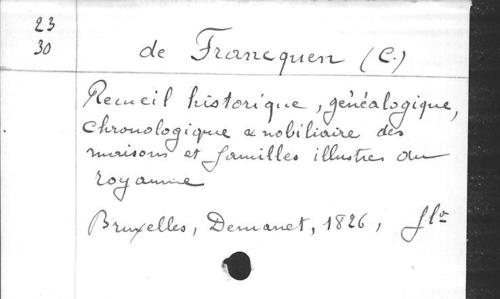 23
30
de Francquen (C.)
Recueil historique, généalogique,
chronologique & nobiliaire des
maisons et familles illustres du
royaume
Bruxelles, Demanet, 1826, flo